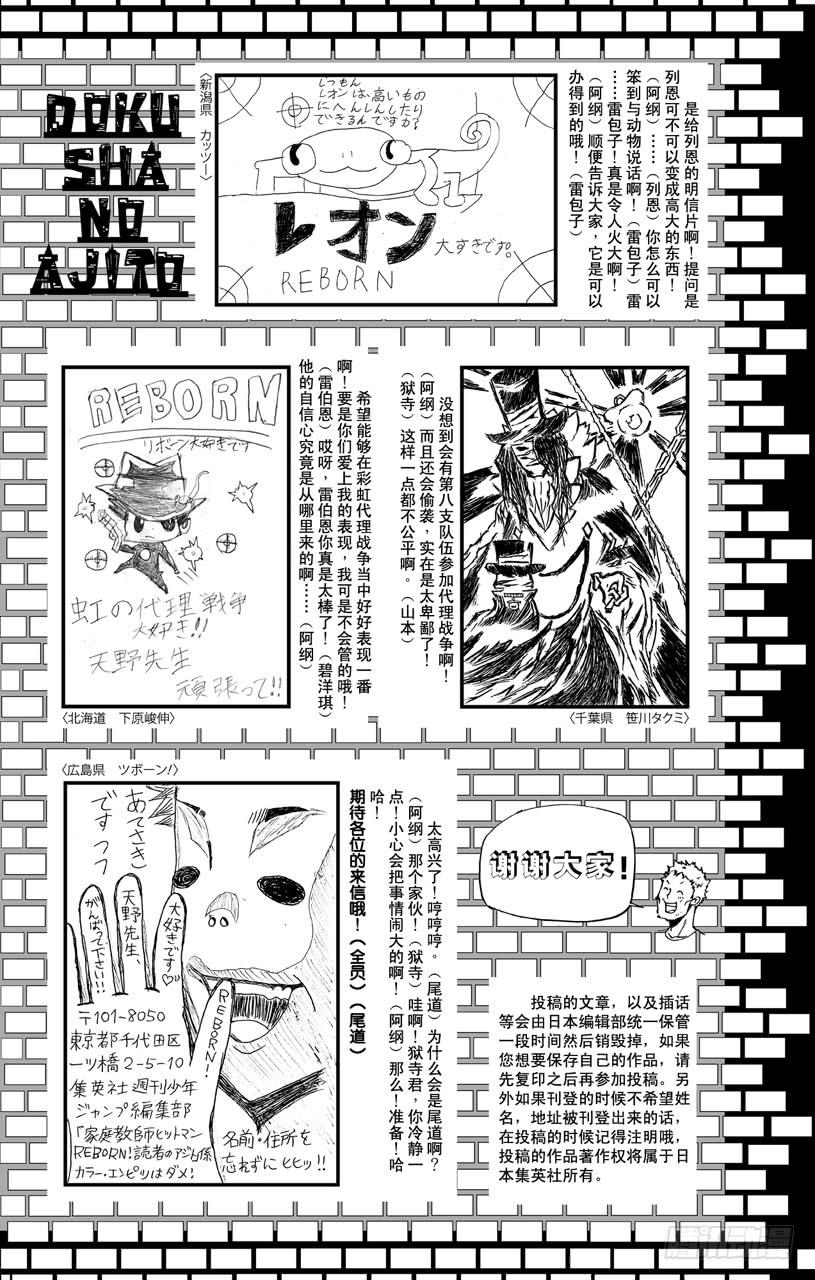 DOKU
SHA
NO
AJITO
〈新潟県　カッツー〉
しつもん
レオンは、高いもの
にへんしんしたり
できるんですか?
レオン
大すきです。
REBORN
是给列恩的明信片啊！提问是
列恩可不可以变成高大的东西！
（阿纲）……（列恩）你怎么可以
笨到与动物说话啊！（雷包子）雷
……雷包子！真是令人火大啊！
（阿纲）顺便告诉大家，它是可以
办得到的哦！（雷包子）
REBORN
リボーン大好きです
虹の代理戦争
大好き!!
天野先生
頑張って!!
〈北海道　下原峻伸〉
希望能够在彩虹代理战争当中好好表现一番
啊！要是你们爱上我的表现，我可是不会管的哦！
（雷伯恩）哎呀，雷伯恩你真是太棒了！（碧洋琪）
他的自信心究竟是从哪里来的啊……（阿纲）
没想到会有第八支队伍参加代理战争啊！
（阿纲）而且还会偷袭，实在是太卑鄙了！
（狱寺）这样一点都不公平啊。（山本）
〈千葉県　笹川タクミ〉
〈広島県　ツボーン!〉
あてさき
ですっっ
大好きです♡
天野先生、
がんばって下さい!!!
REBORN!
〒101-8050
東京都千代田区
一ツ橋2-5-10
集英社週刊少年
ジャンプ編集部
「家庭教師ヒットマン
REBORN!読者のアジト係
カラー・エンピツはダメ!
名前・住所を
忘れずにヒヒッ!!
太高兴了！哼哼哼。（尾道）为什么会是尾道啊？
（阿纲）那个家伙！（狱寺）哇啊！狱寺君，你冷静一
点！小心会把事情闹大的啊！（阿纲）那么！准备！哈
哈！
期待各位的来信哦！（全员）（尾道）
谢谢大家！
投稿的文章，以及插话
等会由日本编辑部统一保管
一段时间然后销毁掉，如果
您想要保存自己的作品，请
先复印之后再参加投稿。另
外如果刊登的时候不希望姓
名，地址被刊登出来的话，
在投稿的时候记得注明哦，
投稿的作品著作权将属于日
本集英社所有。
腾讯动漫